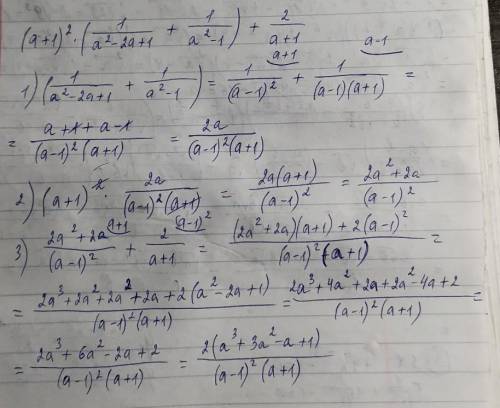 (a+1)² · (1/(a²-2a+1) + 1/(a²-1)) + 2/(a+1)
1) (1/(a²-2a+1) + 1/(a²-1)) = 1/(a-1)² (a+1 + 1/((a-1)(a+1)) (a-1 =
= (a+1+a-1)/((a-1)²(a+1)) = 2a/((a-1)²(a+1))
2) (a+1)² · 2a/((a-1)²(a+1)) = 2a(a+1)/(a-1)² = (2a²+2a)/(a-1)²
3) (2a²+2a)/(a-1)² (a+1 + 2/(a+1) ((a-1)² = ((2a²+2a)(a+1)+2(a-1)²)/((a-1)²(a+1)) =
= (2a³+2a²+2a²+2a+2(a²-2a+1))/((a-1)²(a+1)) = (2a³+4a²+2a+2a²-4a+2)/((a-1)²(a+1)) =
= (2a³+6a²-2a+2)/((a-1)²(a+1)) = 2(a³+3a²-a+1)/((a-1)²(a+1))